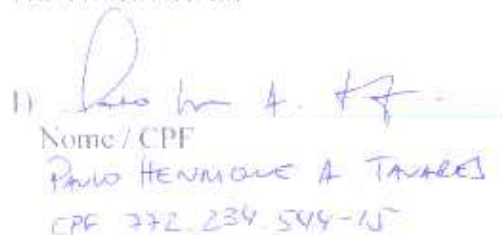 1)
Nome / CPF
PAULO HENRIQUE A TAVARES
CPF 772.234.544-15